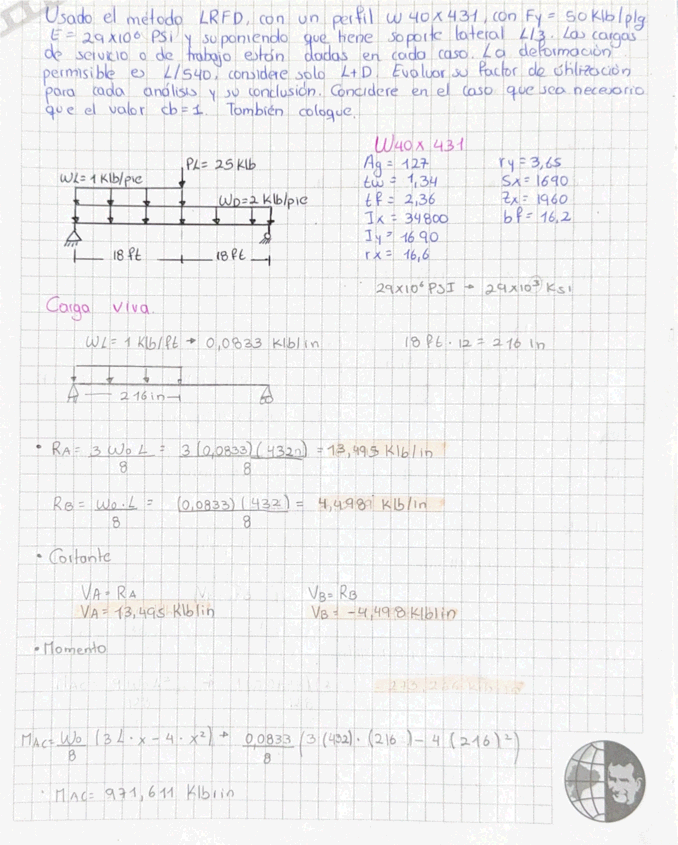 Usado el método LRFD, con un perfil W 40x431, con Fy = 50 Klb/plg
E = 29x10⁶ PSi y suponiendo que tiene soporte lateral L/3. Las cargas
de servicio o de trabajo están dadas en cada caso. La deformación
permisible es L/540, considere solo L+D. Evaluar su factor de Utilización
para cada análisis y su conclusión. Concidere en el caso que sea necesario
que el valor cb=1. También coloque.
W40x431
PL= 25 Klb
WL= 1 Klb/pie
WD=2 Klb/pie
18 ft
18 ft
Ag = 127
tw = 1,34
tf = 2,36
Ix = 34800
Iy = 1690
rx = 16,6
ry = 3,65
Sx = 1690
Zx = 1960
bf = 16,2
29x10⁶ PSI → 29x10³ Ksi
Carga viva.
WL= 1 Klb/ft → 0,0833 Klb/in
18 ft · 12 = 216 in
216in
• RA= 3 W0 L / 8 = 3(0,0833)(432) / 8 = 13,495 Klb/in
RB= W0·L / 8 = (0,0833)(432) / 8 = 4,498 Klb/in
• Cortante
VA= RA
VB= RB
VA= 13,495 Klb/in
VB= -4,498 Klb/in
• Momento
MAC= W0/8 (3L·x - 4·x²) → 0,0833/8 (3(432)·(216) - 4(216)²)
· MAC= 971,611 Klb·in